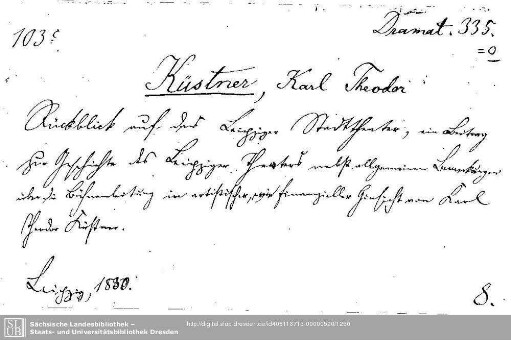 Dramat. 335.
103
=0
Küstner, Karl Theodor
Rückblick auf das Leipziger Stadttheater, ein Beitrag
zur Geschichte des Leipziger Theaters nebst allgemeinen Bemerkungen
über die Bühnenleitung in artistischer, wie finanzieller Hinsicht von Karl
Theodor Küstner.
Leipzig, 1830.
8.
Sächsische Landesbibliothek –
Staats- und Universitätsbibliothek Dresden